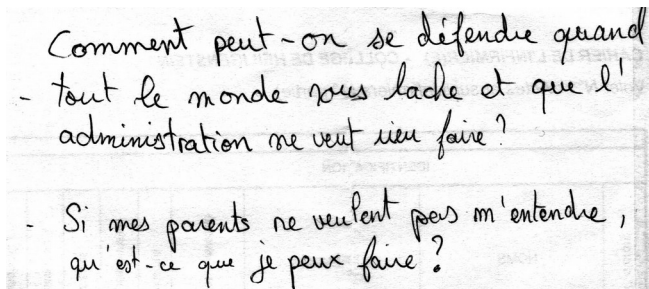 Comment peut-on se défendre quand
- tout le monde vous lache et que l'
administration ne veut rien faire ?
- Si mes parents ne veulent pas m'entendre,
qu'est-ce que je peux faire ?